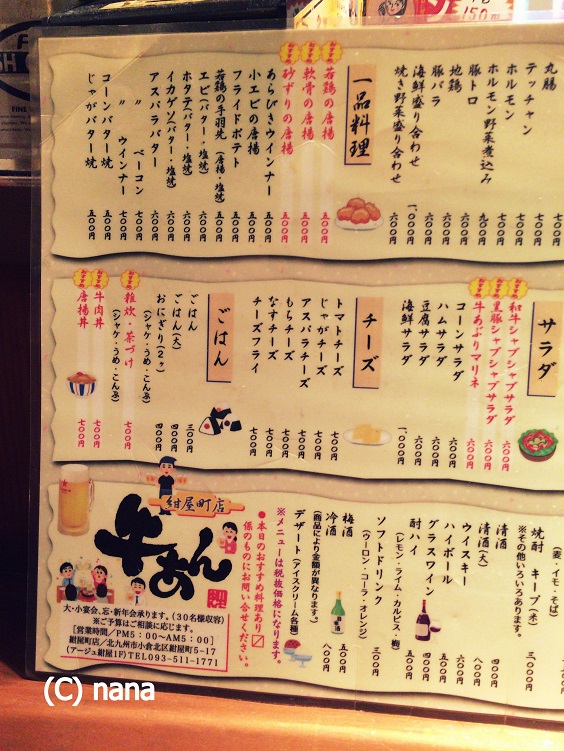 丸腸
テッチャン 七〇〇円
ホルモン 七〇〇円
ホルモン野菜煮込み 七〇〇円
豚トロ 九〇〇円
地鶏 六〇〇円
豚バラ 六〇〇円
海鮮盛り合わせ 一、〇〇〇円
焼き野菜盛り合わせ 六〇〇円
一品料理
おすすめ 若鶏の唐揚 五〇〇円
おすすめ 軟骨の唐揚 五〇〇円
おすすめ 砂ずりの唐揚 五〇〇円
あらびきウインナー 五〇〇円
小エビの唐揚 五〇〇円
フライドポテト 五〇〇円
若鶏の手羽先(唐揚・塩焼) 五〇〇円
エビ(バター・塩焼) 六〇〇円
ホタテ(バター・塩焼) 六〇〇円
イカゲソ(バター・塩焼) 六〇〇円
アスパラバター 六〇〇円
〃 ベーコン 七〇〇円
〃 ウインナー 七〇〇円
コーンバター焼 五〇〇円
じゃがバター焼 五〇〇円
サラダ
おすすめ 和牛シャブシャブサラダ 六〇〇円
おすすめ 黒豚シャブシャブサラダ 六〇〇円
おすすめ 牛あぶりマリネ 七〇〇円
コーンサラダ 六〇〇円
ハムサラダ 六〇〇円
豆腐サラダ 六〇〇円
海鮮サラダ 一、〇〇〇円
チーズ
トマトチーズ 七〇〇円
じゃがチーズ 七〇〇円
アスパラチーズ 七〇〇円
もちチーズ 七〇〇円
なすチーズ 七〇〇円
チーズフライ 七〇〇円
ごはん
ごはん 三〇〇円
ごはん(大) 四〇〇円
おにぎり(2ヶ) 四〇〇円
(シャケ・うめ・こんぶ)
おすすめ 雑炊・茶づけ 七〇〇円
(シャケ・うめ・こんぶ)
おすすめ 牛肉丼 七〇〇円
おすすめ 唐揚丼 七〇〇円
(麦・イモ・そば)
焼酎 キープ(米) 三、〇〇〇円
※その他いろいろあります。
清酒
清酒(大)
ウイスキー
ハイボール
グラスワイン
酎ハイ
(レモン・ライム・カルピス・梅)
ソフトドリンク 三〇〇円
(ウーロン・コーラ・オレンジ)
梅酒 五〇〇円
冷酒 八〇〇円
(商品により金額が異なります。)
デザート(アイスクリーム各種)
※メニューは税抜価格になります。
●本日のおすすめ料理あり
係のものにお問い合せください。
紺屋町店
牛あん
大・小宴会、忘・新年会承ります。(30名様収容)
※ご予算はご相談に応じます。
[営業時間/PM5:00〜AM5:00]
紺屋町店/北九州市小倉北区紺屋町5-17
(アージュ紺屋1F)TEL093-511-1771
(C) nana